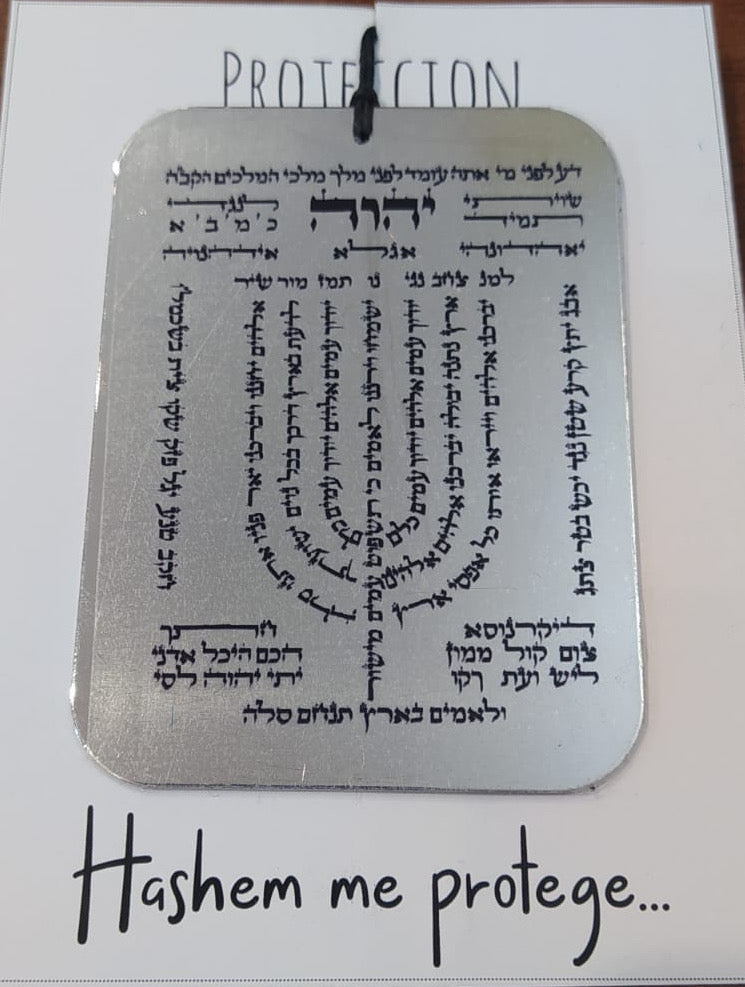 PROTECCION
דע לפני מי אתה עומד לפני מלך מלכי המלכים הקבה
שויתי יהוה לנגדי
תמיד כ'מ'ב' א
יאהדונהי אגלא אידהנויה
למנ צחב נגי נו תמז מור שיר
אבג יתץ קרע שטן נגד יכש בטר צתג
יברכנו אלהים וייראו אותו כל אפסי ארץ
ארץ נתנה יבולה יברכנו אלהים אלהינו
יודוך עמים אלהים יודוך עמים כלם
ישמחו וירננו לאמים כי תשפט עמים מישור
יודוך עמים אלהים יודוך עמים כלם
לדעת בארץ דרכך בכל גוים ישועתך
אלהים יחננו ויברכנו יאר פניו אתנו סלה
חקב טנע יגל פזק שקו צית
דיקרנוסא חתך
צום קול ממון הכם היכל אדני
ליש ועת רקו יתי יהוה לסי
ולאמים בארץ תנחם סלה
Hashem me protege...